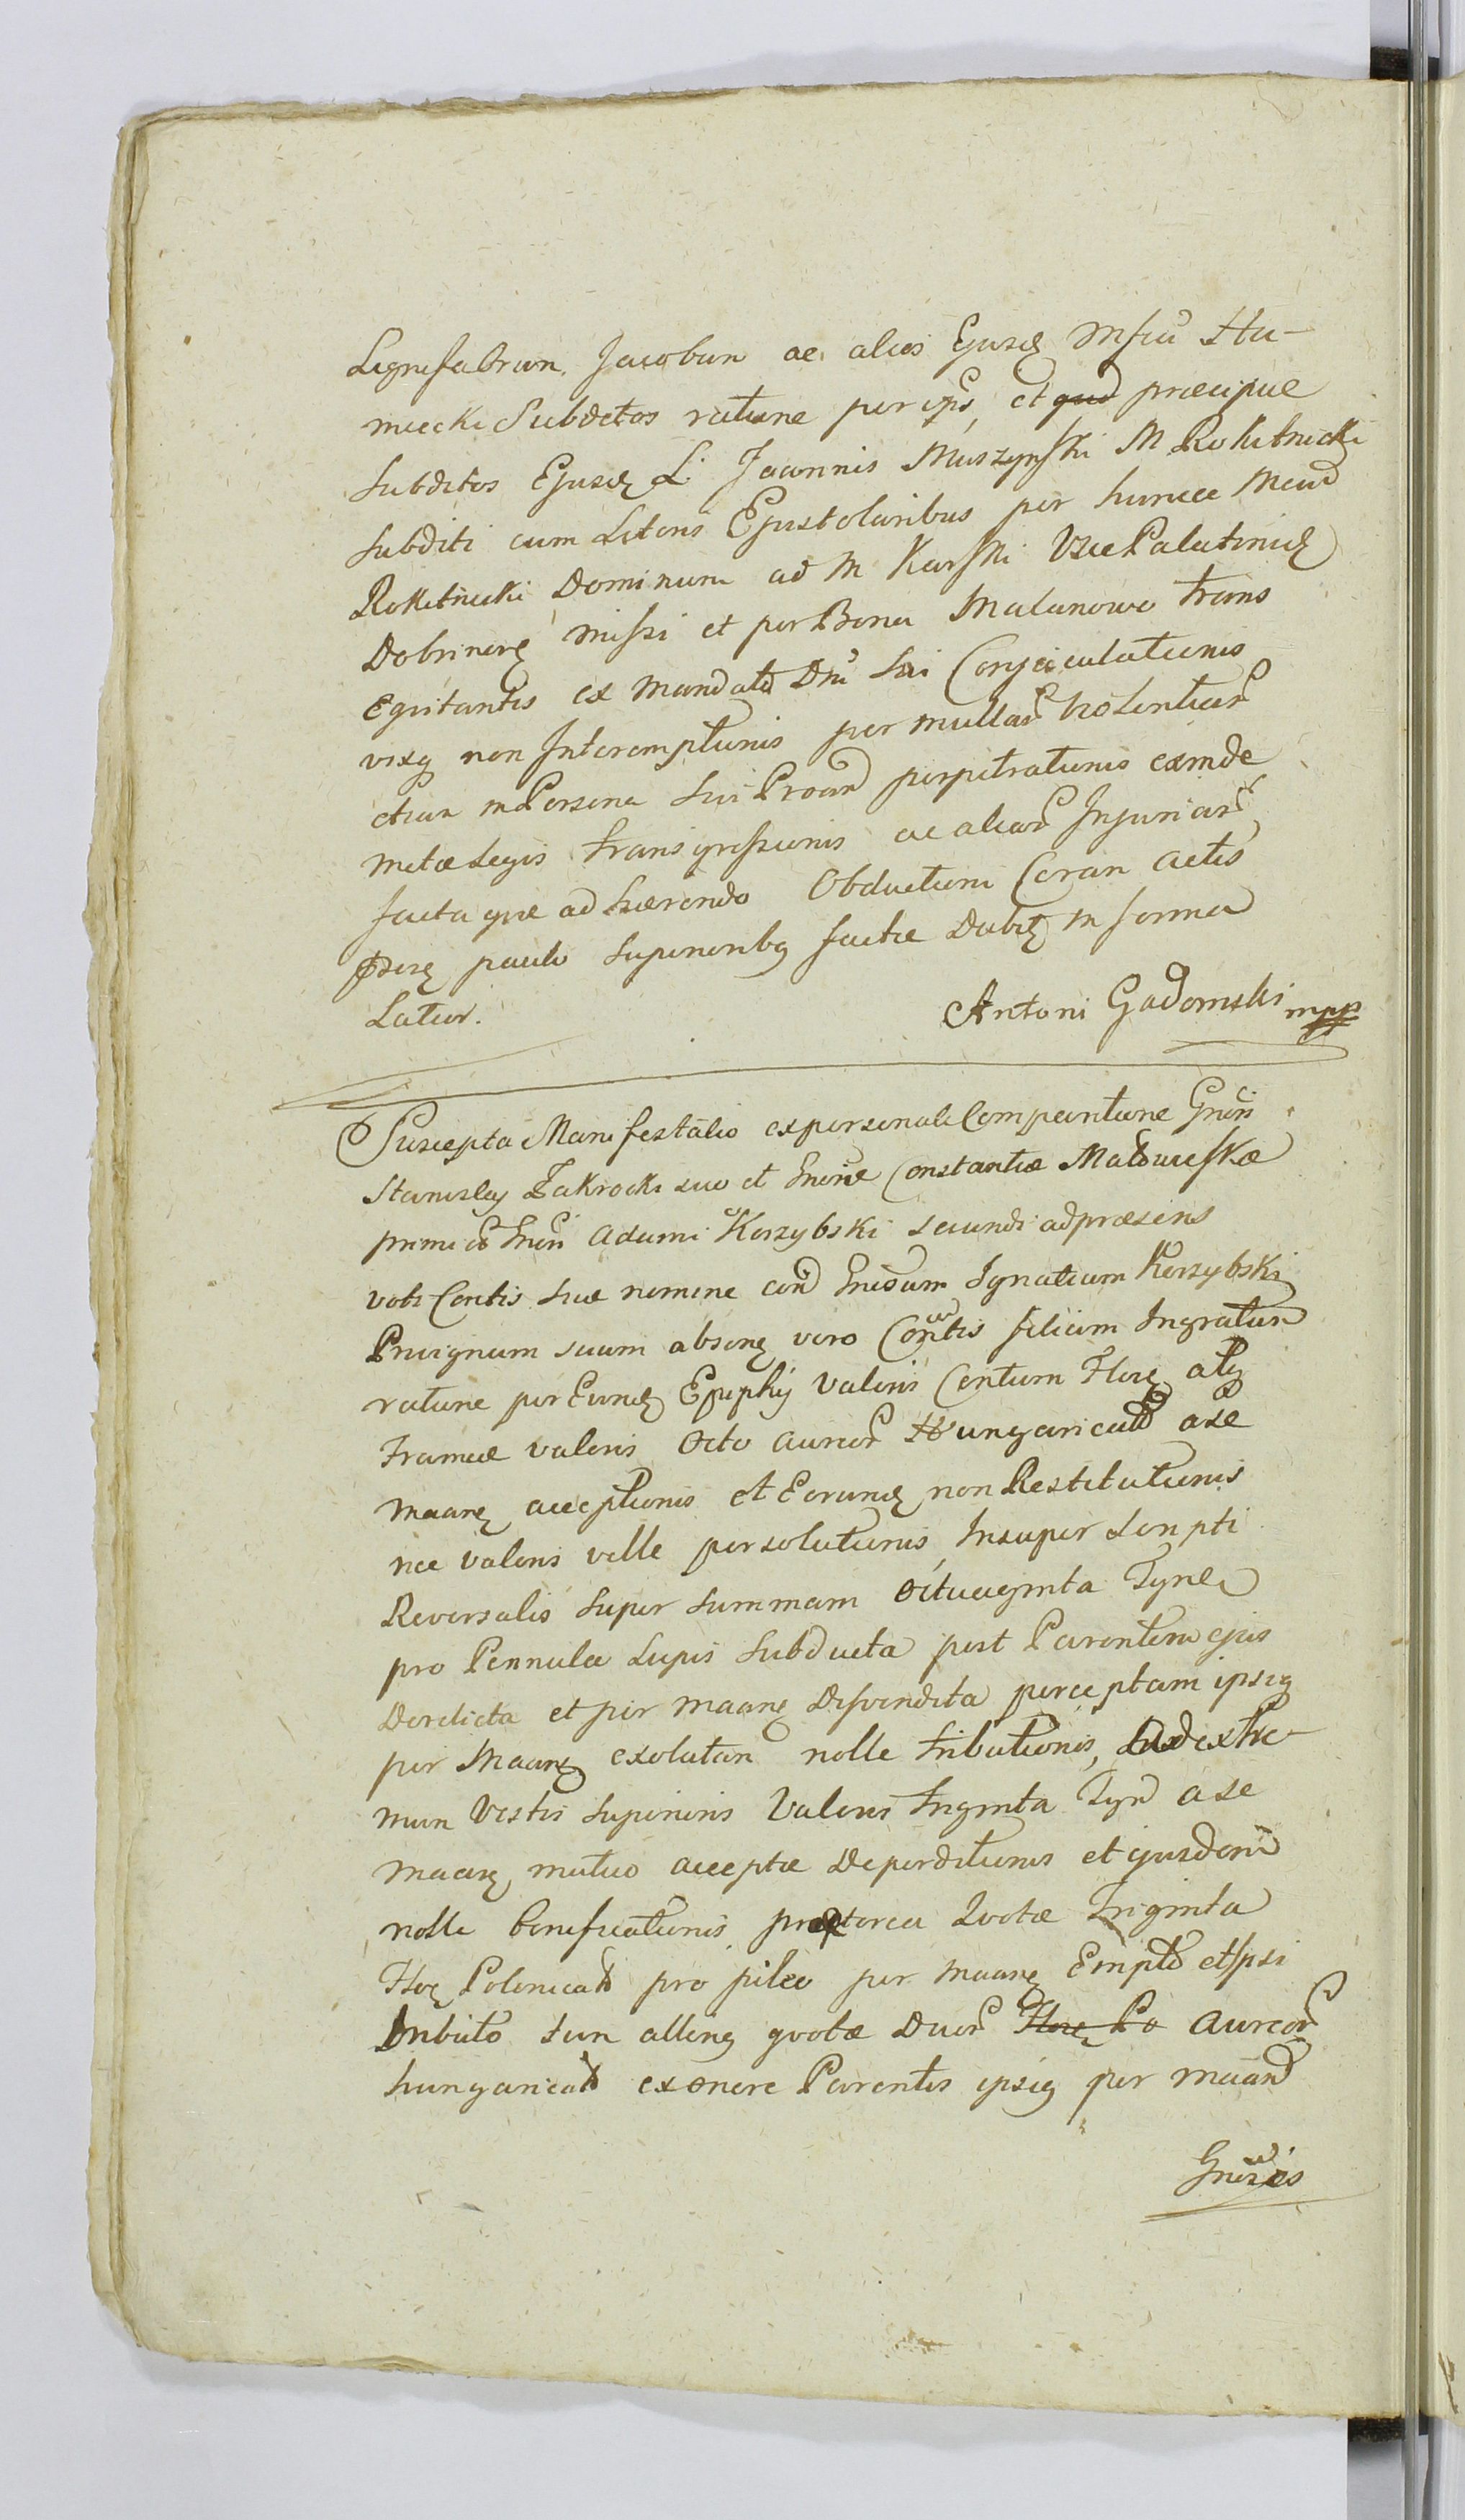 Lignifabrum, Jacobum ac alios Ejusd Msci Hu-
miecki Subditos ratione per ips, et quod præcipue
Subditos Ejusd L. Joannis Muszynski M Rokitnicki
subditi cum Literis Epistolaribus per hunce Mcum
Rokitnicki Dominum ad M Karski Vice Palatinid
Dobrinens missi et per Bona Malanowo trans
Equitantis ex Mandato Dni Sui
visq non Interemptionis per mullar violentiar
etiam in Persona Sui Proin perpetrationis exinde
metæ Legis transgressionis ac aliar Injuriar
facta quæ adhærendo Obductioni Coram actis
præs paulo superioribq factæ Dabit in forma
Latior.
Antoni Gadomski mpp
Suscepta Manifestatio ex personali Comparitione Gnosi
Stanislaj Zakrocki suo et Gnosæ Constantiæ
primi et Gnosi Adami Korzybski secundi ad præsens
voti Contis suæ nomine con Gnosum Ignatium Korzybski
Privignum suum absens vero Contis filium Ingratum
ratione per Eund Ephipij valoris Centum Flor atq
Frameæ valoris Octo aureor Hungaricalium a se
Maans acceptionis et Eorund non Restitutionis
nec valoris velle persolutionis, Insuper Scripti
Reversalis super summam Octuaginta Tynf
pro Pennula Lupis subducta post Parentem ejus
Derelicta et per Maans Disvendita perceptam ipsiq
per Maans exolutam nolle tributionis, Ad extre-
mum Vestis superioris Valoris Triginta Tynf a se
Maans mutuo acceptæ Deperditionis et ejusdem
nolle bonificationis, præterea Quotæ Triginta
Flor Polonical pro pileo per Maans Empto et Ipsi
tributo tum altering quotæ Duor Flor Po aureor
hungarical ex onere Parentis ipsiq per Maan
Gnosis